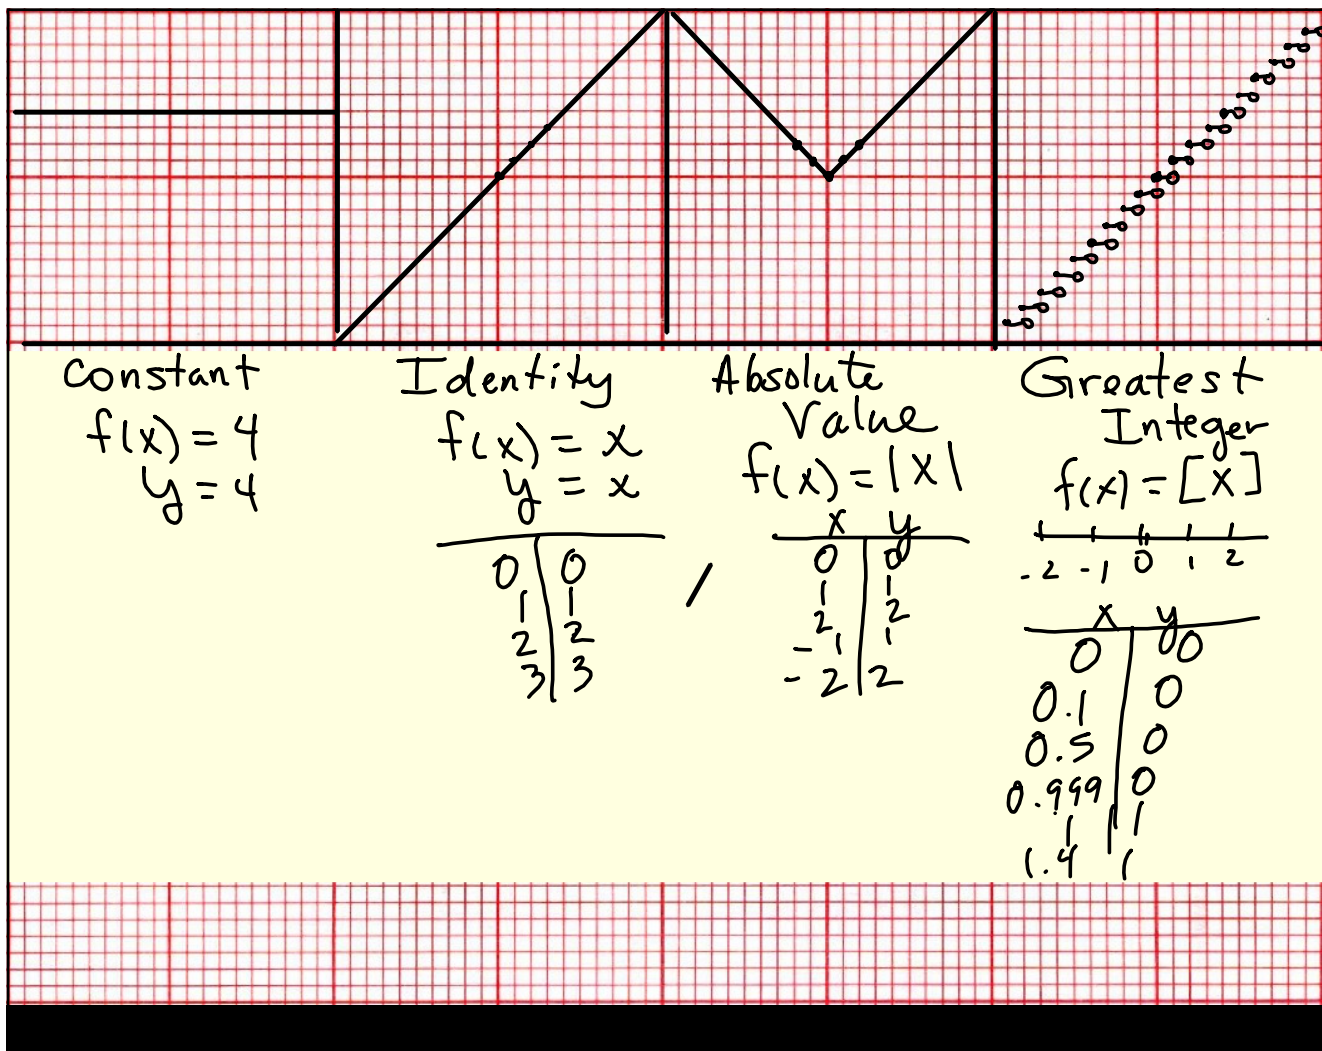 Constant
f(x) = 4
y = 4
Identity
f(x) = x
y = x
0 0
1 1
2 2
3 3
Absolute
Value
f(x) = |x|
x y
0 0
1 1
2 2
-1 1
-2 2
Greatest
Integer
f(x) = [x]
-2 -1 0 1 2
x y
0 0
0.1 0
0.5 0
0.999 0
1 1
1.4 1